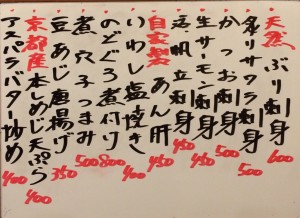 天然ぶり刺身 600
炙りサワラ刺身 500
かつお刺身 500
生サーモン刺身 450
活帆立刺身 450
自家製あん肝 450
いわし塩焼き 400
のどぐろ煮付け 800
煮穴子つまみ 500
豆あじ唐揚げ 350
京都産本しめじ天ぷら 400
アスパラバター炒め 400